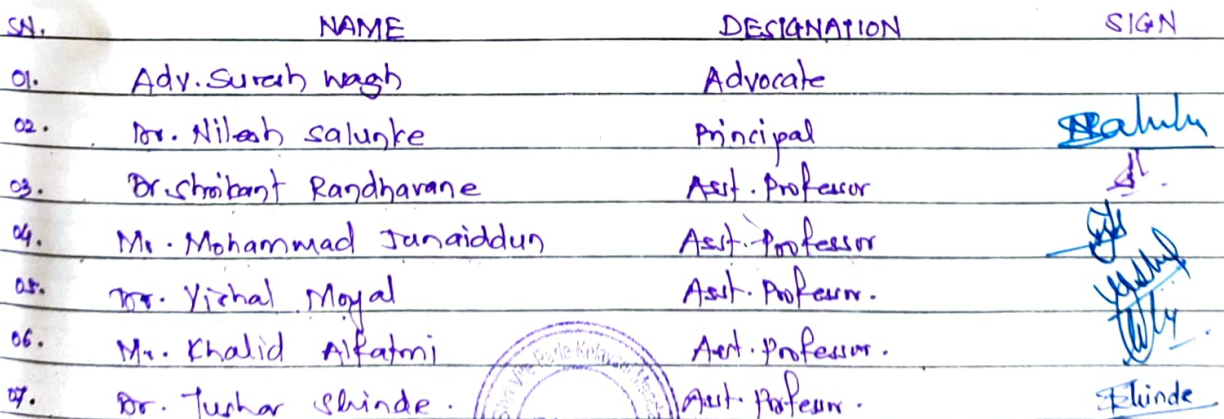 SN. NAME DESIGNATION SIGN
01. Adv. Suresh Wagh Advocate
02. Dr. Nilesh Salunke Principal
03. Dr. Shrikant Randhavane Asst. Professor
04. Mr. Mohammad Junaiddun Asst. Professor
05. Dr. Vishal Moyal Asst. Professor.
06. Mr. Khalid Alfatmi Asst. Professor.
07. Dr. Tushar Shinde. Asst. Professor. Shinde